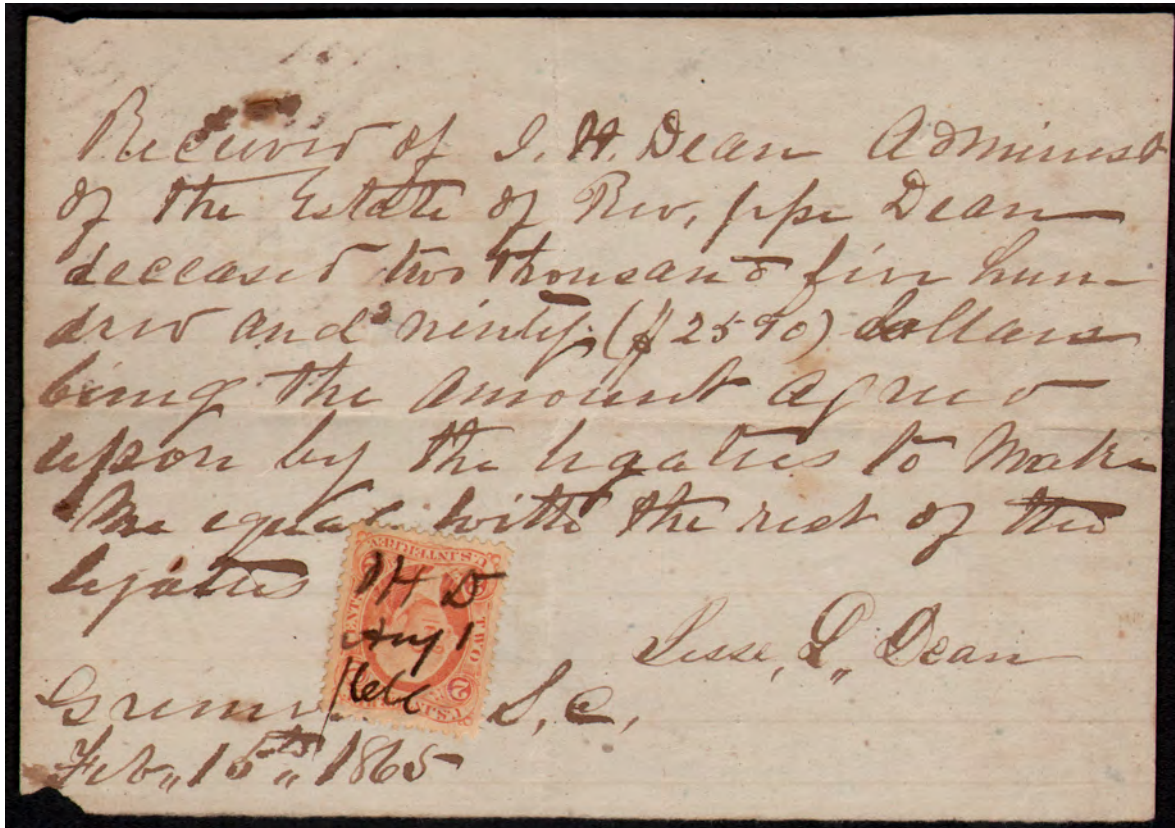 Received of J. H. Dean Administ
of the Estate of Rev, Jesse Dean
deceased two thousand five hun-
dred and ninty ($2590) dollars
being the amount agreed
upon by the legatees to make
me equal with the rest of the
legatees
Jesse, L,, Dean
S, C,
Feb,, 15th,, 1865
J H D
Aug 1
1866
U.S. INTER. REV.
TWO CENTS
2